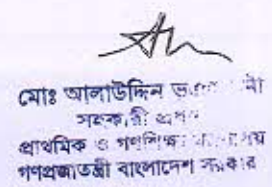 মোঃ আলাউদ্দিন
সহকারী
প্রাথমিক ও গণশিক্ষা
গণপ্রজাতন্ত্রী বাংলাদেশ সরকার